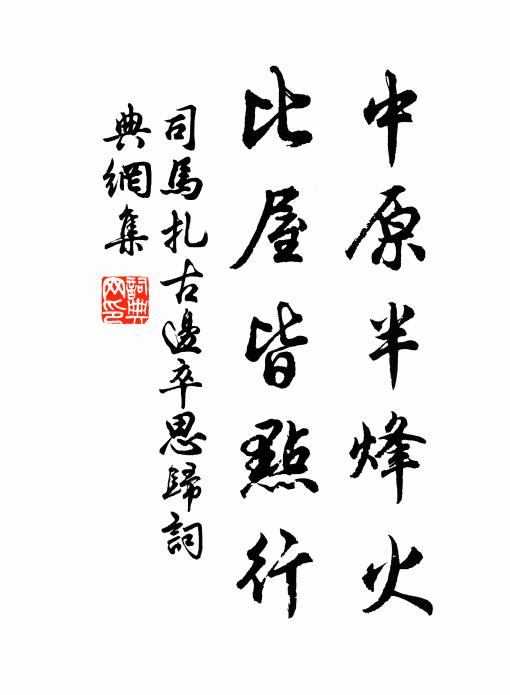 中原半烽火
比屋皆點行
司馬扎古邊卒思歸詞
典網集
詞典網印